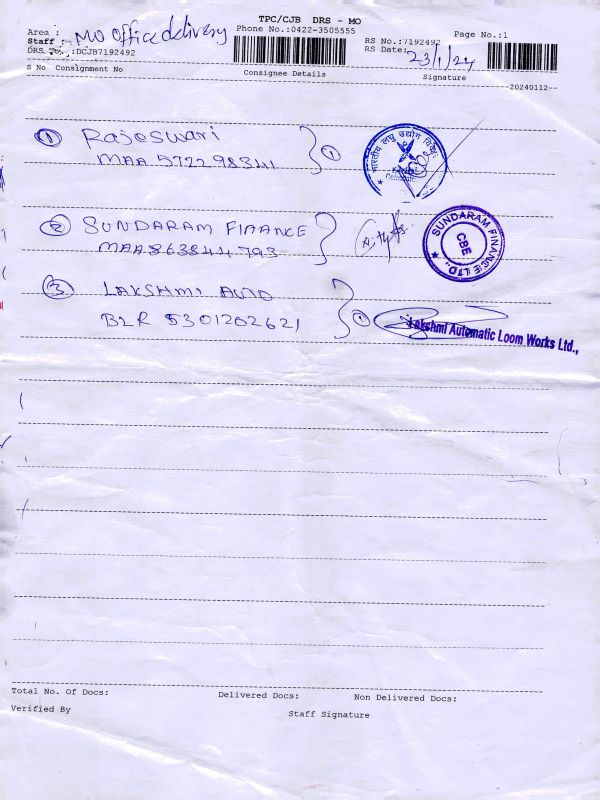 TPC/CJB DRS - MO
Area :
Staff : MO office delivery
Phone No.:0422-3505555
RS No.:7192492
Page No.:1
DRS No.:DCJB7192492
RS Date: 23/1/24
S No Consignment No
Consignee Details
Signature
20240112
1 Rajeswari
MAA 572298341
1
भारतीय लघु उद्योग
2 SUNDARAM FINANCE
MAA 863844793
SUNDARAM FINANCE LTD.,
CBE
3 LAKSHMI AUTO
BLR 5301202621
1
Lakshmi Automatic Loom Works Ltd.,
Total No. Of Docs:
Delivered Docs:
Non Delivered Docs:
Verified By
Staff Signature